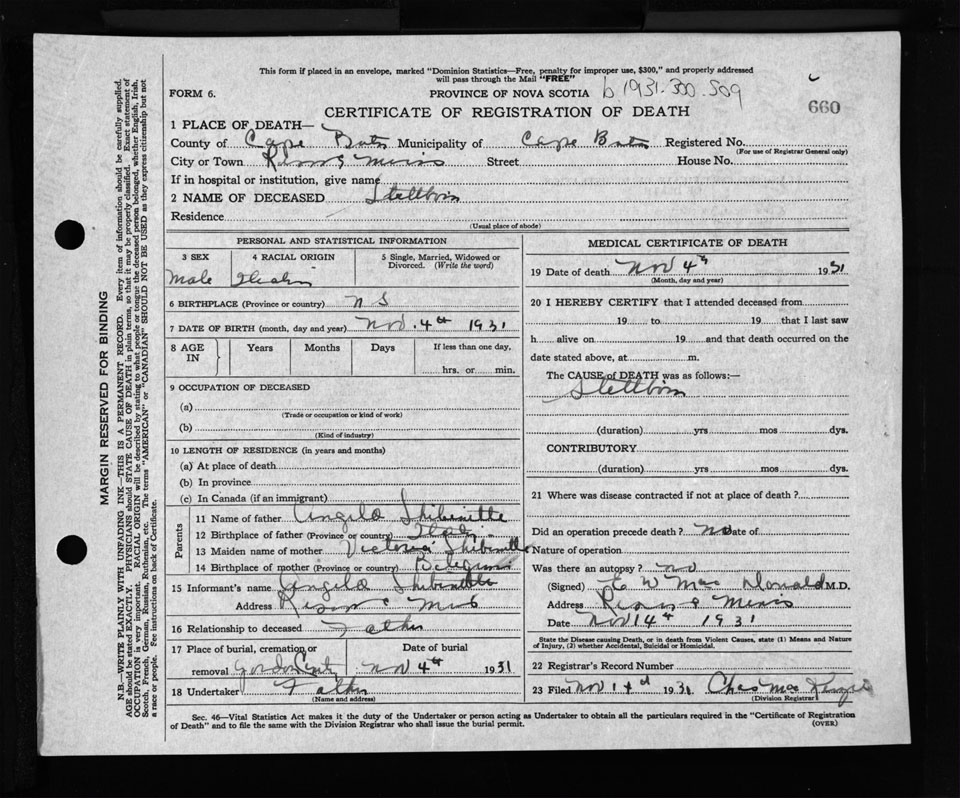 This form if placed in an envelope, marked "Dominion Statistics—Free, penalty for improper use, $300," and properly addressed
will pass through the Mail "FREE"
FORM 6.
PROVINCE OF NOVA SCOTIA
b 1931.300.509
660
CERTIFICATE OF REGISTRATION OF DEATH
1 PLACE OF DEATH—
County of Cape Municipality of Cape Registered No.
(For use of Registrar General only)
City or Town Mines Street House No.
If in hospital or institution, give name
2 NAME OF DECEASED Stillborn
Residence
(Usual place of abode)
PERSONAL AND STATISTICAL INFORMATION
3 SEX
4 RACIAL ORIGIN
5 Single, Married, Widowed or Divorced. (Write the word)
Male
6 BIRTHPLACE (Province or country) N S
7 DATE OF BIRTH (month, day and year) Nov. 4th 1931
8 AGE IN
Years Months Days If less than one day,
hrs. or min.
9 OCCUPATION OF DECEASED
(a)
(Trade or occupation or kind of work)
(b)
(Kind of industry)
10 LENGTH OF RESIDENCE (in years and months)
(a) At place of death
(b) In province
(c) In Canada (if an immigrant)
Parents
11 Name of father Angelo
12 Birthplace of father (Province or country) Italy
13 Maiden name of mother Victoria
14 Birthplace of mother (Province or country)
15 Informant's name Angelo
Address
16 Relationship to deceased Father
17 Place of burial, cremation, or removal
Date of burial
Nov 4th 1931
18 Undertaker Father
(Name and address)
MEDICAL CERTIFICATE OF DEATH
19 Date of death Nov 4th 1931
(Month, day and year)
20 I HEREBY CERTIFY that I attended deceased from
19 to 19 that I last saw
h alive on 19 and that death occurred on the
date stated above, at m.
The CAUSE of DEATH was as follows:—
Stillborn
(duration) yrs mos dys.
CONTRIBUTORY
(duration) yrs. mos dys.
21 Where was disease contracted if not at place of death?
Did an operation precede death? no Date of
Nature of operation
Was there an autopsy? no
(Signed) E W Mac Donald M.D.
Address Mines
Date Nov 14th 1931
State the Disease causing Death, or in death from Violent Causes, state (1) Means and Nature
of Injury, (2) whether Accidental, Suicidal or Homicidal.
22 Registrar's Record Number
23 Filed Nov 14 1931 Chas Mac
(Division Registrar)
Sec. 46—Vital Statistics Act makes it the duty of the Undertaker or person acting as Undertaker to obtain all the particulars required in the "Certificate of Registration
of Death" and to file the same with the Division Registrar who shall issue the burial permit.
(OVER)
MARGIN RESERVED FOR BINDING
N.B.—WRITE PLAINLY WITH UNFADING INK—THIS IS A PERMANENT RECORD. Every item of information should be carefully supplied.
AGE should be stated EXACTLY. PHYSICIANS should STATE CAUSE OF DEATH in plain terms, so that it may be properly classified. Exact statement of
OCCUPATION is very important. RACIAL ORIGIN will be described by stating to what people or tongue the deceased person belonged, whether English, Irish,
Scotch, French, German, Russian, Ruthenian, etc. The terms "AMERICAN" or "CANADIAN" SHOULD NOT BE USED as they express citizenship but not
a race or people. See instructions on back of Certificate.